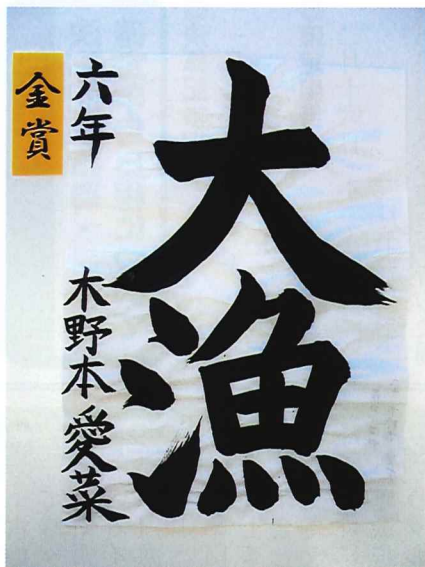 大漁
六年
木野本愛菜
金賞